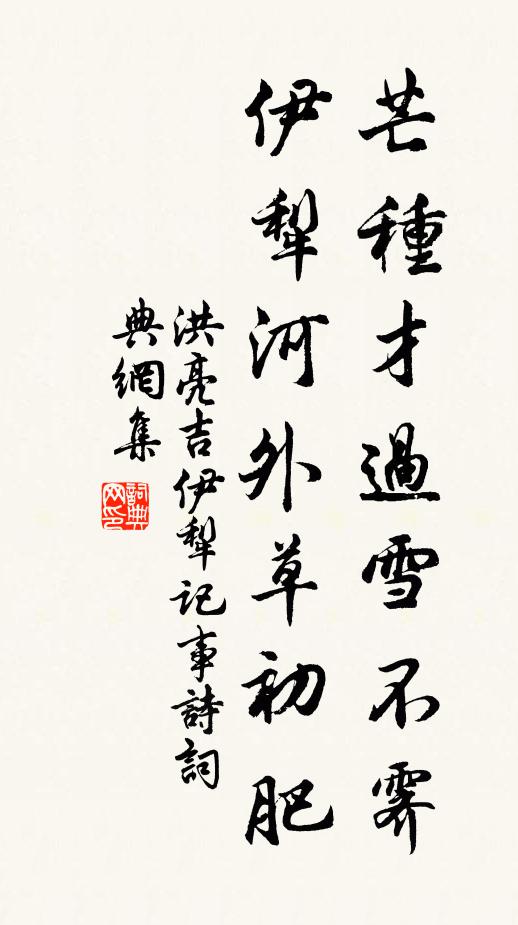 芒種才過雪不霽
伊犁河外草初肥
洪亮吉伊犁記事詩詞
典網集
詞典网印